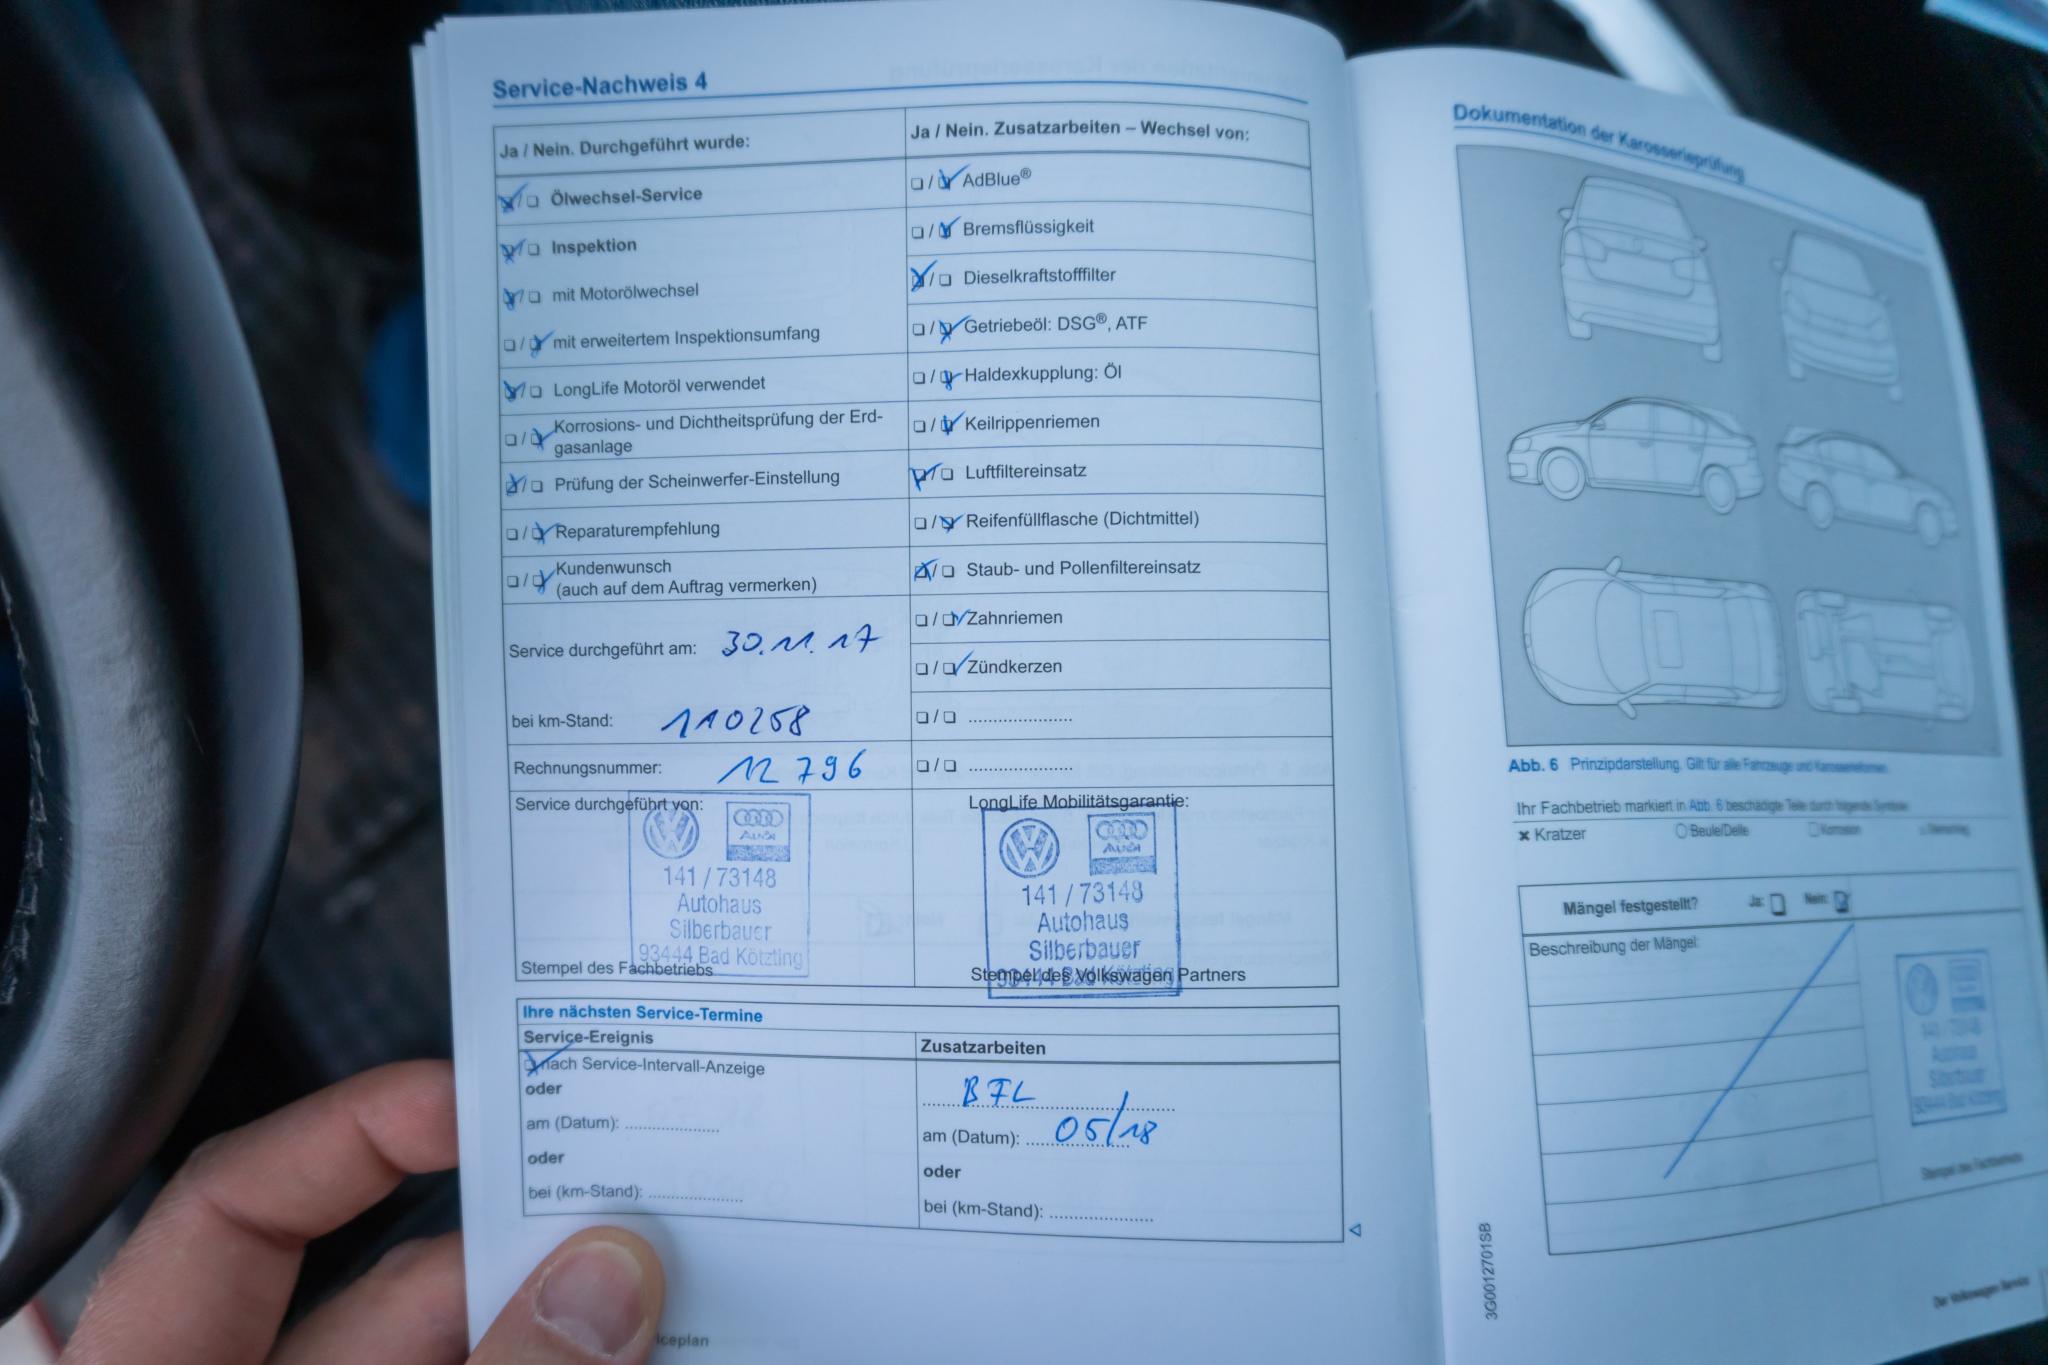 Service-Nachweis 4
Ja / Nein. Durchgeführt wurde:
Ölwechsel-Service
Inspektion
mit Motorölwechsel
mit erweitertem Inspektionsumfang
LongLife Motoröl verwendet
Korrosions- und Dichtheitsprüfung der Erd-
gasanlage
Prüfung der Scheinwerfer-Einstellung
Reparaturempfehlung
Kundenwunsch
(auch auf dem Auftrag vermerken)
Service durchgeführt am: 30.11.17
bei km-Stand: 110258
Rechnungsnummer: 12796
Service durchgeführt von:
Audi
141 / 73148
Autohaus
Silberbauer
93444 Bad Kötzting
Stempel des Fachbetriebs
Ja / Nein. Zusatzarbeiten – Wechsel von:
AdBlue®
Bremsflüssigkeit
Dieselkraftstofffilter
Getriebeöl: DSG®, ATF
Haldexkupplung: Öl
Keilrippenriemen
Luftfiltereinsatz
Reifenfüllflasche (Dichtmittel)
Staub- und Pollenfiltereinsatz
Zahnriemen
Zündkerzen
LongLife Mobilitätsgarantie:
Audi
141 / 73148
Autohaus
Silberbauer
93444 Bad Kötzting
Stempel des Volkswagen Partners
Ihre nächsten Service-Termine
Service-Ereignis
nach Service-Intervall-Anzeige
oder
am (Datum):
oder
bei (km-Stand):
Zusatzarbeiten
BFL
am (Datum): 05/18
oder
bei (km-Stand):
iceplan
Dokumentation der Karosserieprüfung
Abb. 6 Prinzipdarstellung. Gilt für alle Fahrzeuge und Karosserieformen.
Ihr Fachbetrieb markiert in Abb. 6 beschädigte Teile durch folgende Symbole:
× Kratzer
Beule/Delle
Korrosion
Mängel festgestellt? Ja: Nein:
Beschreibung der Mängel:
141 / 73148
Autohaus
Silberbauer
93444 Bad Kötzting
Stempel des Fachbetriebs
3G0012701SB
Der Volkswagen Service